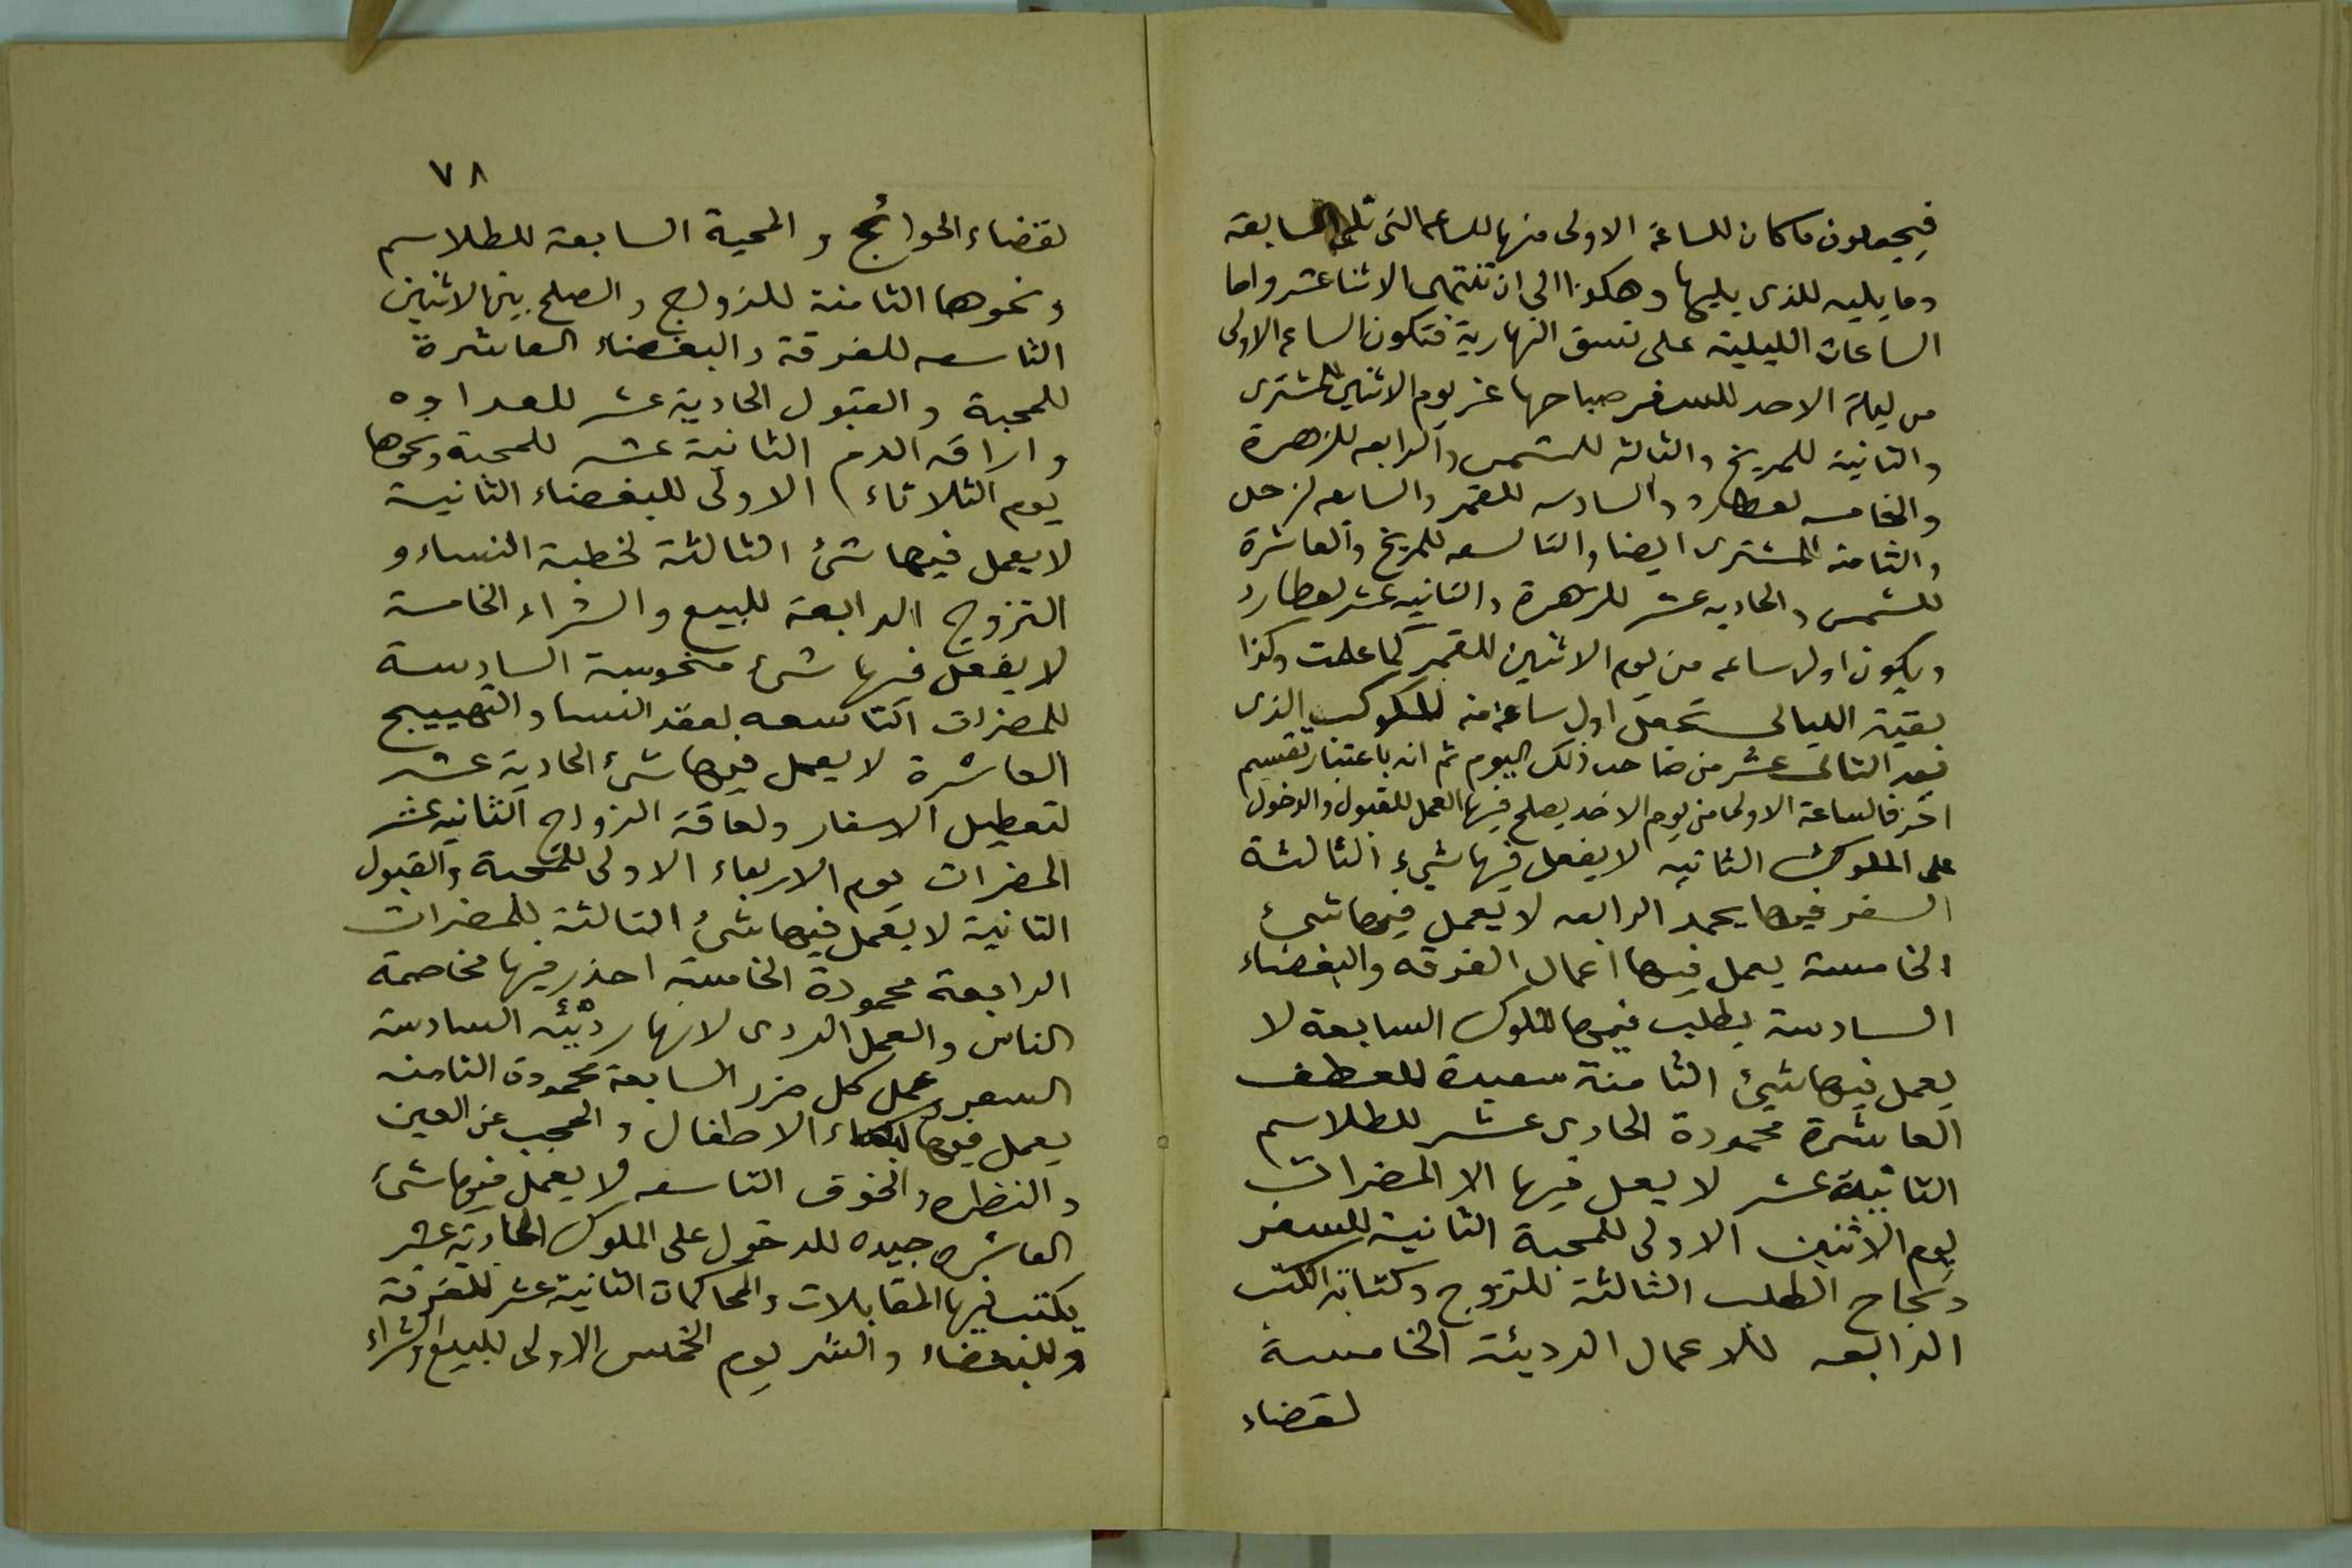 فيجعلون ما كان للساعة الاولى منها للساعه التى تلى السابقه
وما يليه للذى يليها وهكذا الى ان تنتهى الاثنا عشر واما
الساعات الليلية على نسق النهارية فتكون الساعه الاولى
من ليلة الاحد للسفر صباحها عن يوم الاثنين للمشترى
والثانية للمريخ والثالثه للشمس والرابعه للزهرة
والخامسه لعطارد والسادسه للقمر والسابعه لزحل
والثامنه للمشترى ايضا والتاسعه للمريخ والعاشرة
للشمس والحاديه عشر للزهرة والثانيه عشر لعطارد
ويكون اول ساعه من يوم الاثنين للقمر كما علمت وكذا
بقية الليالى تجعل اول ساعة منه للكوكب الذى
بعد الثانى عشر من صاحب ذلك اليوم ثم انه باعتبار تقسيم
آخر فالساعة الاولى من يوم الاحد يصلح فيها العمل للقبول والدخول
على الملوك الثانيه لا يفعل فيها شيء الثالثة
السفر فيها يحمد الرابعه لا يعمل فيها شئ
الخامسة يعمل فيها اعمال الفرقه والبغضاء
السادسة يطلب فيها الملوك السابعة لا
يعمل فيها شيئ الثامنة سعيدة للعطف
العاشرة محمودة الحادى عشر للطلاسم
الثانية عشر لا يعمل فيها الا المضرات
يوم الاثنين الاولى للمحبة الثانية للسفر
ونجاح الطلب الثالثة للتزوج وكتابة الكتب
الرابعه للاعمال الرديئة الخامسة
لقضاء
٧٨
لقضاء الحوائج والمحبة السابعة للطلاسم
ونحوها الثامنة للزواج والصلح بين الاثنين
التاسعه للفرقة والبغضاء العاشرة
للمحبة والقبول الحادية عشر للعداوه
واراقه الدم الثانية عشر للمحبة ونحوها
يوم الثلاثاء الاولى للبغضاء الثانية
لا يعمل فيها شئ الثالثة لخطبة النساء و
التزوج الرابعة للبيع والشراء الخامسة
لا يفعل فيها شئ منحوسة السادسة
للمضرات التاسعه لعقد النساء والتهييج
العاشرة لا يعمل فيها شئ الحادية عشر
لتعطيل الاسفار ولعاقة الزواج الثانيه عشر
المضرات يوم الاربعاء الاولى للمحبة والقبول
الثانية لا يعمل فيها شئ الثالثة للمضرات
الرابعة محمودة الخامسة احذر فيها مخاصمة
الناس والعمل الردى لانها رديئه السادسة
السفر وعمل كل ضرر السابعة محمودة الثامنه
يعمل فيها لبكاء الاطفال والحجب عن العين
والنظره والخوف التاسعه لا يعمل فيها شئ
العاشره جيده للدخول على الملوك الحادية عشر
يكتب فيها المقابلات والمحاكمات الثانية عشر للفرقة
وللبغضاء والشر يوم الخميس الاولى للبيع والشراء